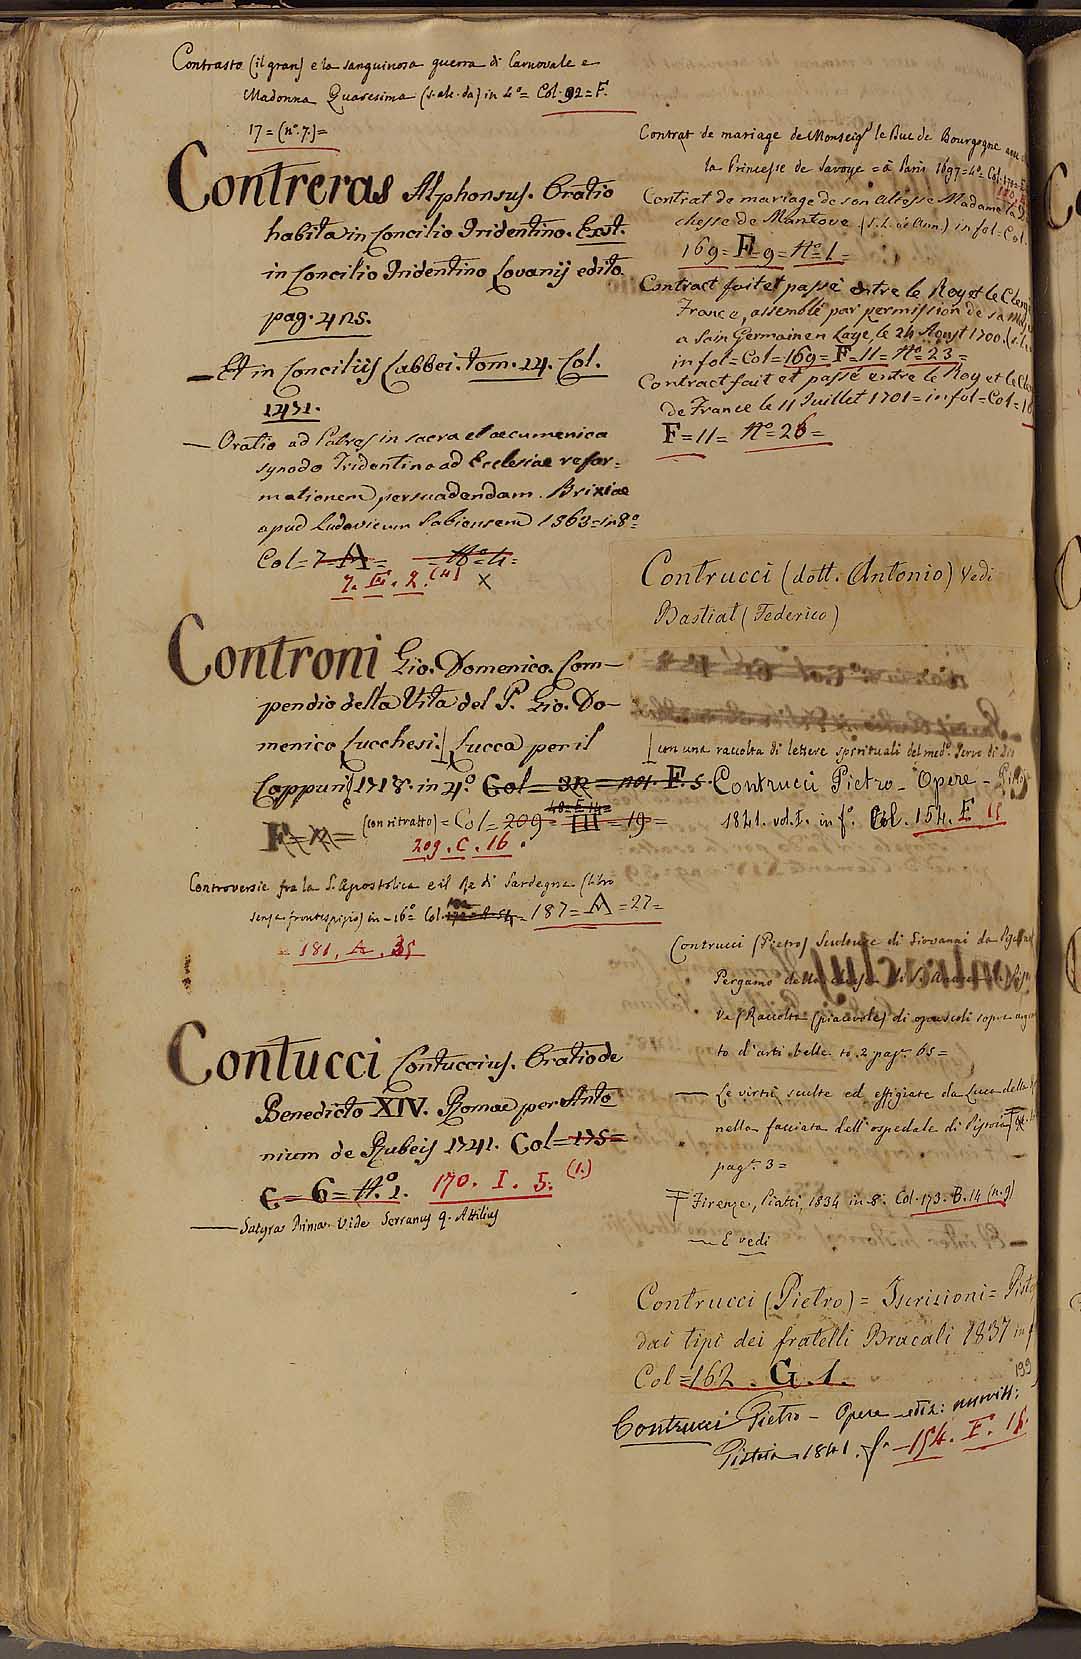 Contrasto (il gran) e la sanguinosa guerra di Carnovale e
Madonna Quaresima (s. ale. da) in 4º = Col. 92 = F.
17 = (nº. 7.) =
Contreras Alphonsus. Oratio
habita in Concilio Tridentino. Exst.
in Concilio Tridentino Lovanij edito
pag. 425.
— Et in Concilijs Labbei. tom. 14. Col.
1431.
— Oratio ad Patres in sacra et oecumenica
synodo Tridentina ad Ecclesiae refor=
mationem persuadendam. Brixiae
apud Ludovicum Sabiensem 1563 = in 8º
Col = 7 A = Nº 4 =
7. G. 2. (4) X
Controni Gio. Domenico. Com-
pendio della Vita del P. Gio. Do-
menico Lucchesi. Lucca per il
Cappurij 1718. in 4º. Col = F. 5.
(con ritratto) = Col = 209 = III = 19 =
48 = F. 14 =
209. C. 16.
Controversie fra la S. Apostolica e il Re di Sardegna (libro
senza frontespizio) in - 16º Col. = 187 = A = 27 =
= 181. A. 35
Contucci Contuccius. Oratio de
Benedicto XIV. Romae per Anto
nium de Rubeis 1741. Col = 175 =
C = 6 = Nº. 1. 170. I. 5. (1.)
— Satyra Prima. Vide Serranus Q. Attilius
Contrat de mariage de Monseigr le Duc de Bourgogne
la Princesse de Savoye = à Paris 1697 = 4º = Col.
Contrat de mariage de son Altesse Madame la
chesse de Mantove (s. l. ed Ann.) in fol = Col.
169 = F = 9 = Nº 1 =
Contract fait et passé entre le Roy et le Clerg
France, assemblé par permission de sa
a Sain Germain en Laye, le 24 Aoust 1700.
in fol = Col = 169 = F = 11 = Nº 23 =
Contract fait et passé entre le Roy et le Cle
de France le 11 Juillet 1701 = in fol = Col = 1
F = 11 = Nº = 26 =
Contrucci (dott. Antonio) Vedi
Bastiat (Federico)
con una raccolta di lettere spirituali del medº. Servo di Dio
Contrucci Pietro - Opere -
1841. vol. I. in fº. Col. 154. E 15
Contrucci (Pietro) Sculture di Giovanni da
Pergamo della chiesa di S. Andrea
Va (Raccolta (piacevole) di opuscoli sopra
to d'arti belle to. 2 pagª. 65 =
— Le virtù sculte ed effigiate da Luca della
nella facciata dell'ospedale di Pistoia
pagª. 3 =
Firenze, Piatti, 1834 in 8º. Col. 173. B. 14 (n. 9)
— E vedi
Contrucci (Pietro) = Iscrizioni = Pisto
dai tipi dei fratelli Bracali 1837 in f
Col = 162. G. 1.
199
Contrucci Pietro - Opere - ediz:
Pistoia - 1841. fº - 154. E. 15.